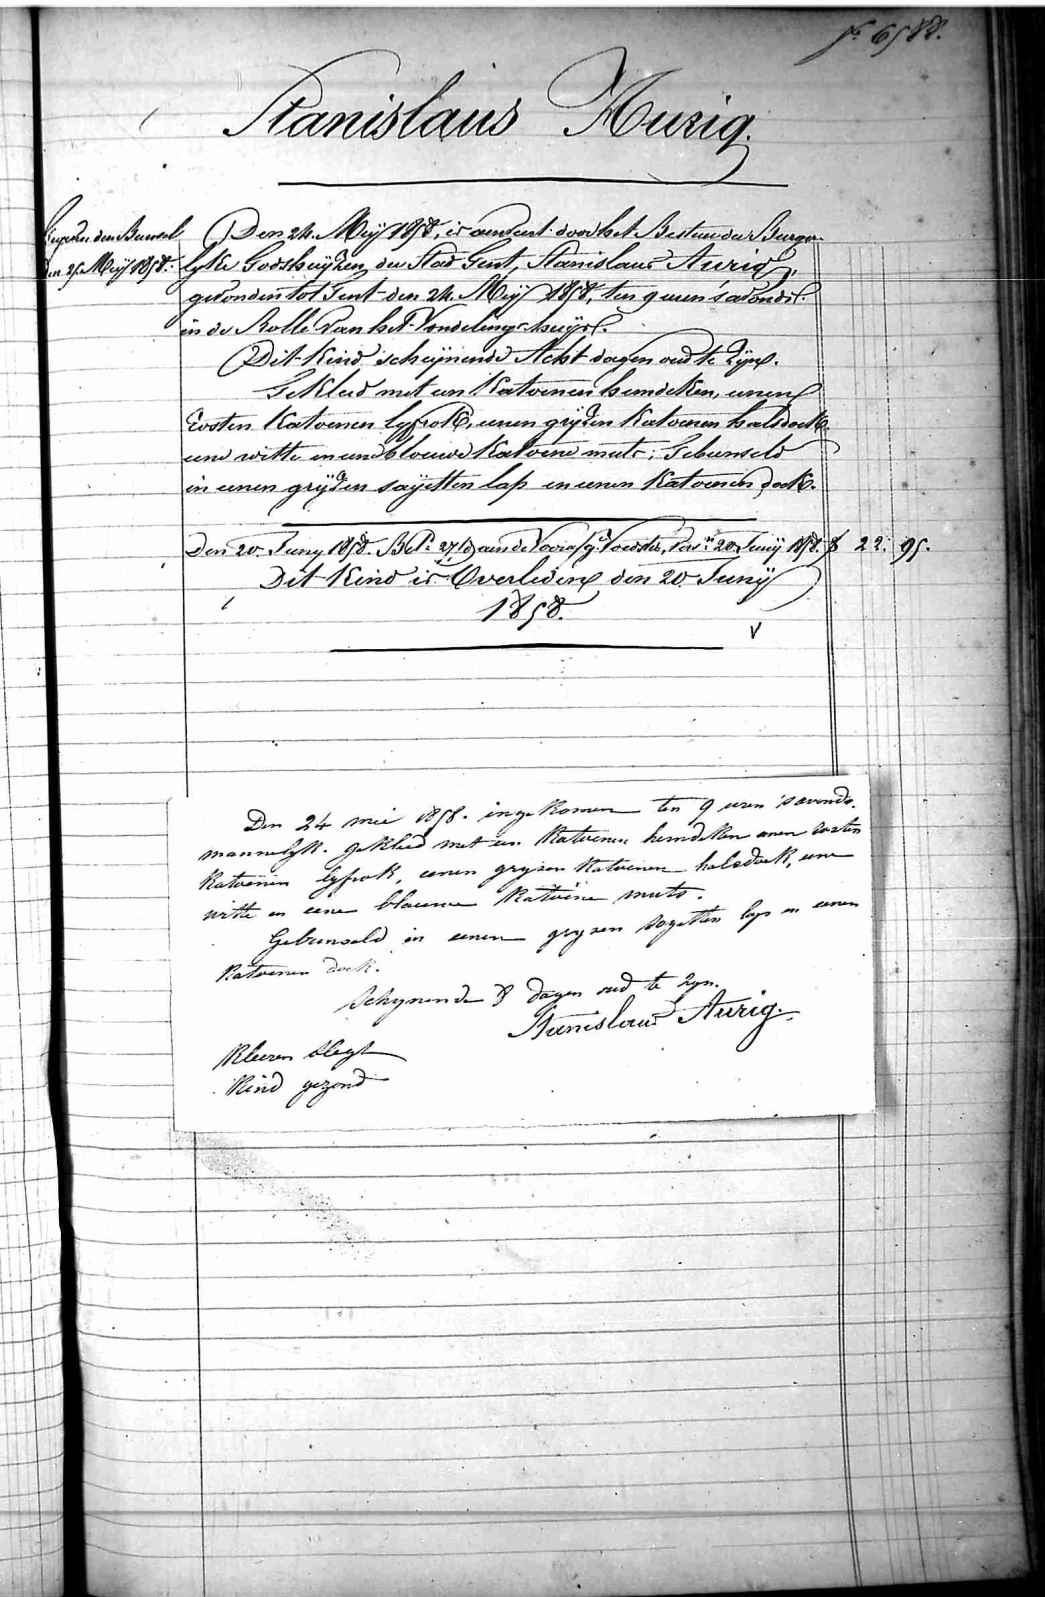 6588.
Stanislaus Aurig.
den Bureel
25 Meij 1858.
Den 24 Meij 1858, is aenveert door het Bestuer der Burger-
lyke Godshuijzen der Stad Gent, Stanislaus Aurig,
gevonden tot Gent den 24 Meij 1858, ten 9 uren 's avonds.
in de Rolle van het Vondelings-huijs.
Dit Kind scheijnende Acht dagen oud te Zijn.
Gekleed met een Katoenen hemdeken, eenen
rosten Katoenen lyfrok, eenen grijzen Katoenen halsdoek
eene witte en eene blouwe Katoene muts; Gebunseld
in eenen grijzen saijetten lap en eenen Katoenen doek.
Den 20 Junij 1858. aen de Voedster, 20 Junij 1858. f 22. 95.
Dit Kind is Overleden den 20 Junij
1858.
V
Den 24 mei 1858. ingekomen ten 9 uren 's avonds.
mannelyk. gekleed met een Katoenen hemdeken eenen rosten
Katoenen lyfrok, eenen gryzen Katoenen halsdoek, eene
witte en eene blauwe Katoene muts.
Gebunseld in eenen gryzen sayetten lap en eenen
Katoenen doek.
Schynende 8 dagen oud te zyn.
Stanislaus Aurig.
Kleeren slegt
Kind gezond